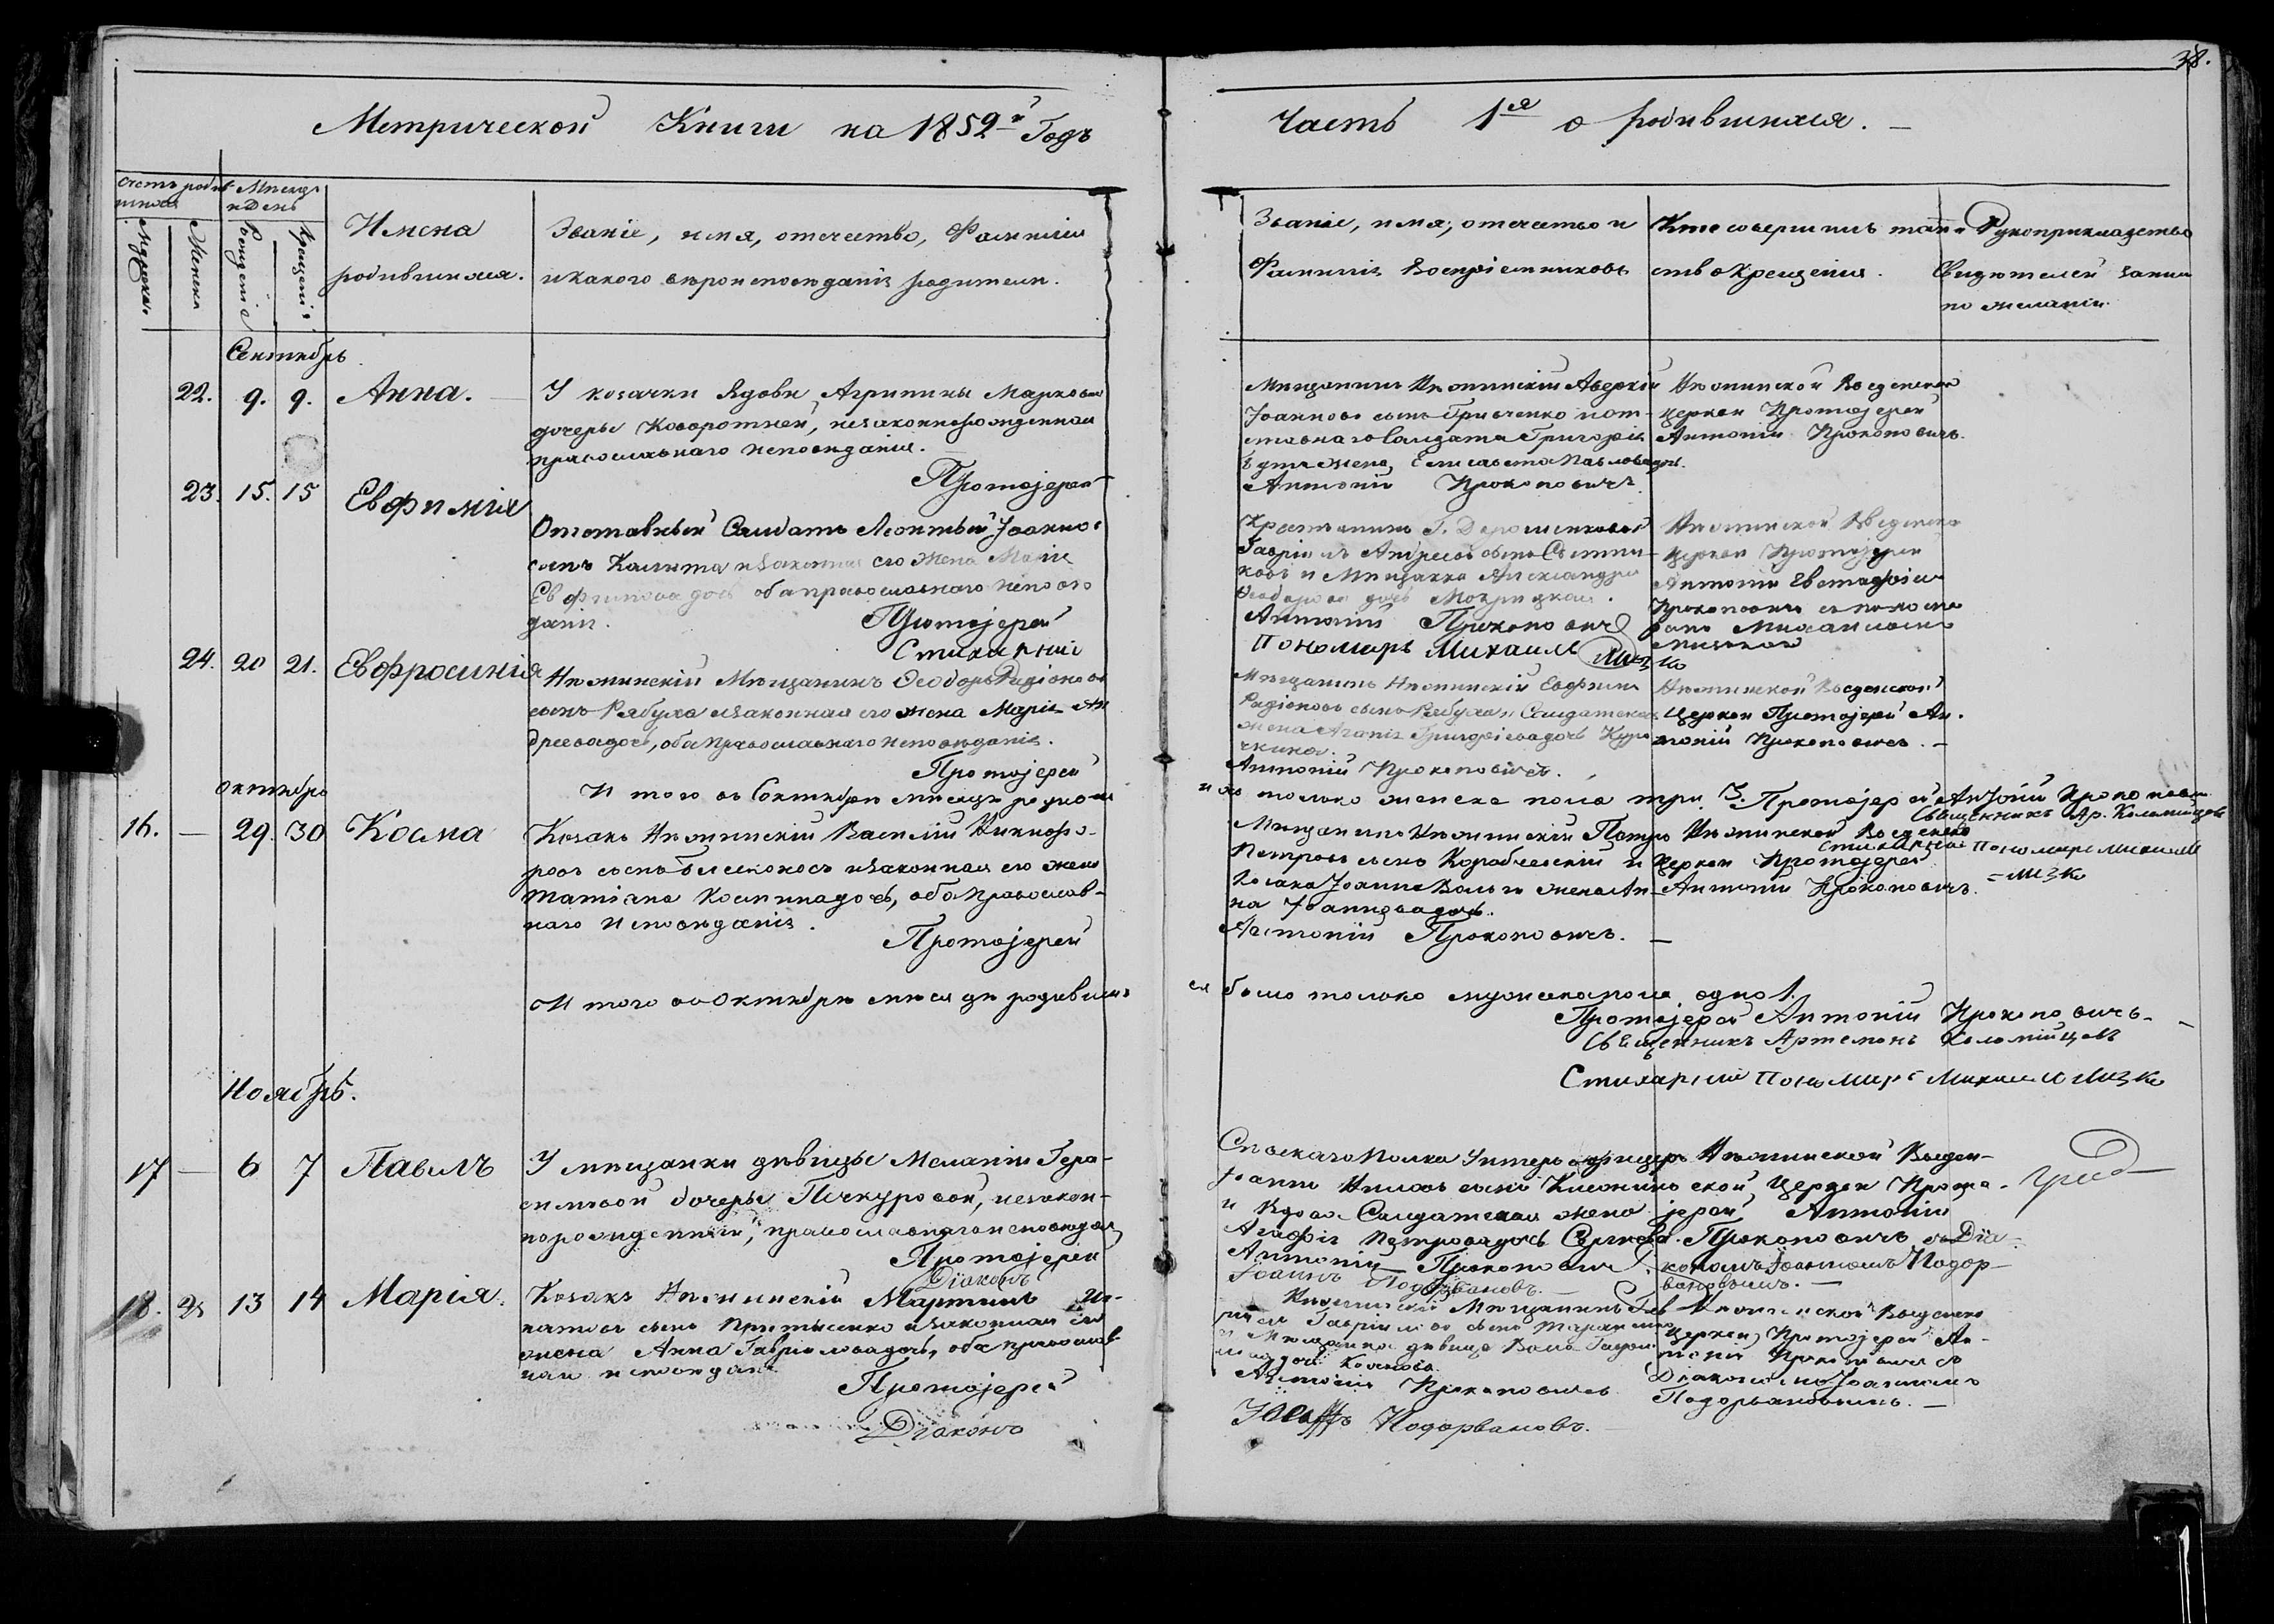 38.
Метрической Книги на 1852й Годъ
Часть 1я о родившихся.
Счетъ родив-
шихся
Мужеска.
Женска
Мѣсяцъ
и День
Рожденія
Крещенія
Имена
родившихся.
Званіе, имя, отчество, Фамилія
и какого вѣроисповѣданія родители.
Званіе, имя, отчество и
Фамилія Воспріемниковъ
Кто совершилъ таин-
ство Крещенія.
Рукоприкладство
Свидѣтелей записи
по желанію.
Сентябрь
22. 9. 9. Анна.
У козачки Вдовы Агрипины Марковой
дочеры Коворотней, незаконнорожденная
православнаго исповѣданія.
Протоіерей
Мѣщанинъ Нѣжинскій Аверкій
Іоанновъ сынъ Гривченко и от-
ставнаго Салдата Григорія
жена Елисавета Павлова дочь.
Антоній Прокоповичъ
Нѣжинской Введенской
церкви Протоіерей
Антоній Прокоповичъ.
23. 15. 15 Евфимія
Отставный Салдатъ Леонтый Іоанновъ
сынъ Калита и законная его жена Марія
Евфимова дочь оба православнаго исповѣ
данія.
Протоіерей
Стихарній
Гавріилъ Андреевъ сынъ
ковъ и Мѣщанка Александра
Феодорова дочь
Антоній Прокоповичъ
Пономарь Михаилъ Мизко
Нѣжинской Введенской
Церкви Протоіерей
Антоній Евстафіевъ
Прокоповичъ съ понома
ремъ Михаиломъ
Мизкомъ
24. 20 21. Евфросинія
Нѣжинскій Мѣщанинъ Феодоръ Радіоновъ
сынъ Рябуха и законная его жена Марія Ан
дреева дочь, оба Православнаго исповѣданія.
Протоіерей
Мѣщанинъ Нѣжинскій Евфимъ
Радіоновъ сынъ Рябуха и Салдатская
жена Агапія Григоріева дочь Кур
чкина.
Антоній Прокоповичъ.
Нѣжинской Введенской
Церкви Протоіерей Ан-
тоній Прокоповичъ. —
И того въ Сентябрѣ мѣсяцѣ родило
ихъ только женска пола три. 3. Протоіерей Антоній Прокопович
Священникъ Ар. Коломійцовъ
Стихарній Пономарь Михаилъ
Мизко
Октябрь
16. — 29. 30 Косма
Козакъ Нѣжинскій Василій Никифо-
ровъ сынъ Белоконосъ и законная его жена
Татіана Космина дочь, оба Православ-
наго Исповѣданія.
Протоіерей
Мѣщанинъ Нѣжинскій Петръ
Петровъ сынъ Корабчевскій и
Козака Іоанна жена Ан-
на Іоаннова дочь.
Антоній Прокоповичъ. —
Нѣжинской Введенской
Церкви Протоіерей
Антоній Прокоповичъ.
И того въ Октябрѣ мѣсяцѣ родивших
ся было только мужеска пола одно 1.
Протоіерей Антоній Прокоповичъ. —
Священникъ Артемонъ Коломійцовъ
Стихарній Пономарь Михаилъ Мизко
Ноябрь.
17 — 6 7 Павелъ
У мѣщанки дѣвицы Меланіи Гера-
симовой дочеры Печкуровой, незакон-
норожденный, православнаго исповѣдан
Протоіерей
Діаконъ
Полка Унтеръ офицеръ
Іоаннъ сынъ
и Вдова Салдатская жена
Агафія Петрова дочь Сергѣева.
Антоній Прокоповичъ
Іоаннъ Подорвановъ. —
Нѣжинской Введен-
ской Церкви Прото-
іерей Антоній
Прокоповичъ съ Діа-
кономъ Іоанномъ Подор-
вановымъ. —
18. 25 13 14 Марія.
Козакъ Нѣжинскій Мартинъ Иг-
натовъ сынъ Притыченко и законная его
жена Анна Гавріилова дочь, оба православ
наго исповѣданія
Протоіерей
Діаконъ
Нѣжинскій Мѣщанинъ
Гавріиловъ сынъ
и Мѣщанка дѣвица
дочь
Антоній Прокоповичъ
Іоаннъ Подорвановъ.
Нѣжинской Введенской
Церкви Протоіерей Ан-
тоній Прокоповичъ съ
Діакономъ Іоанномъ
Подорвановымъ. —